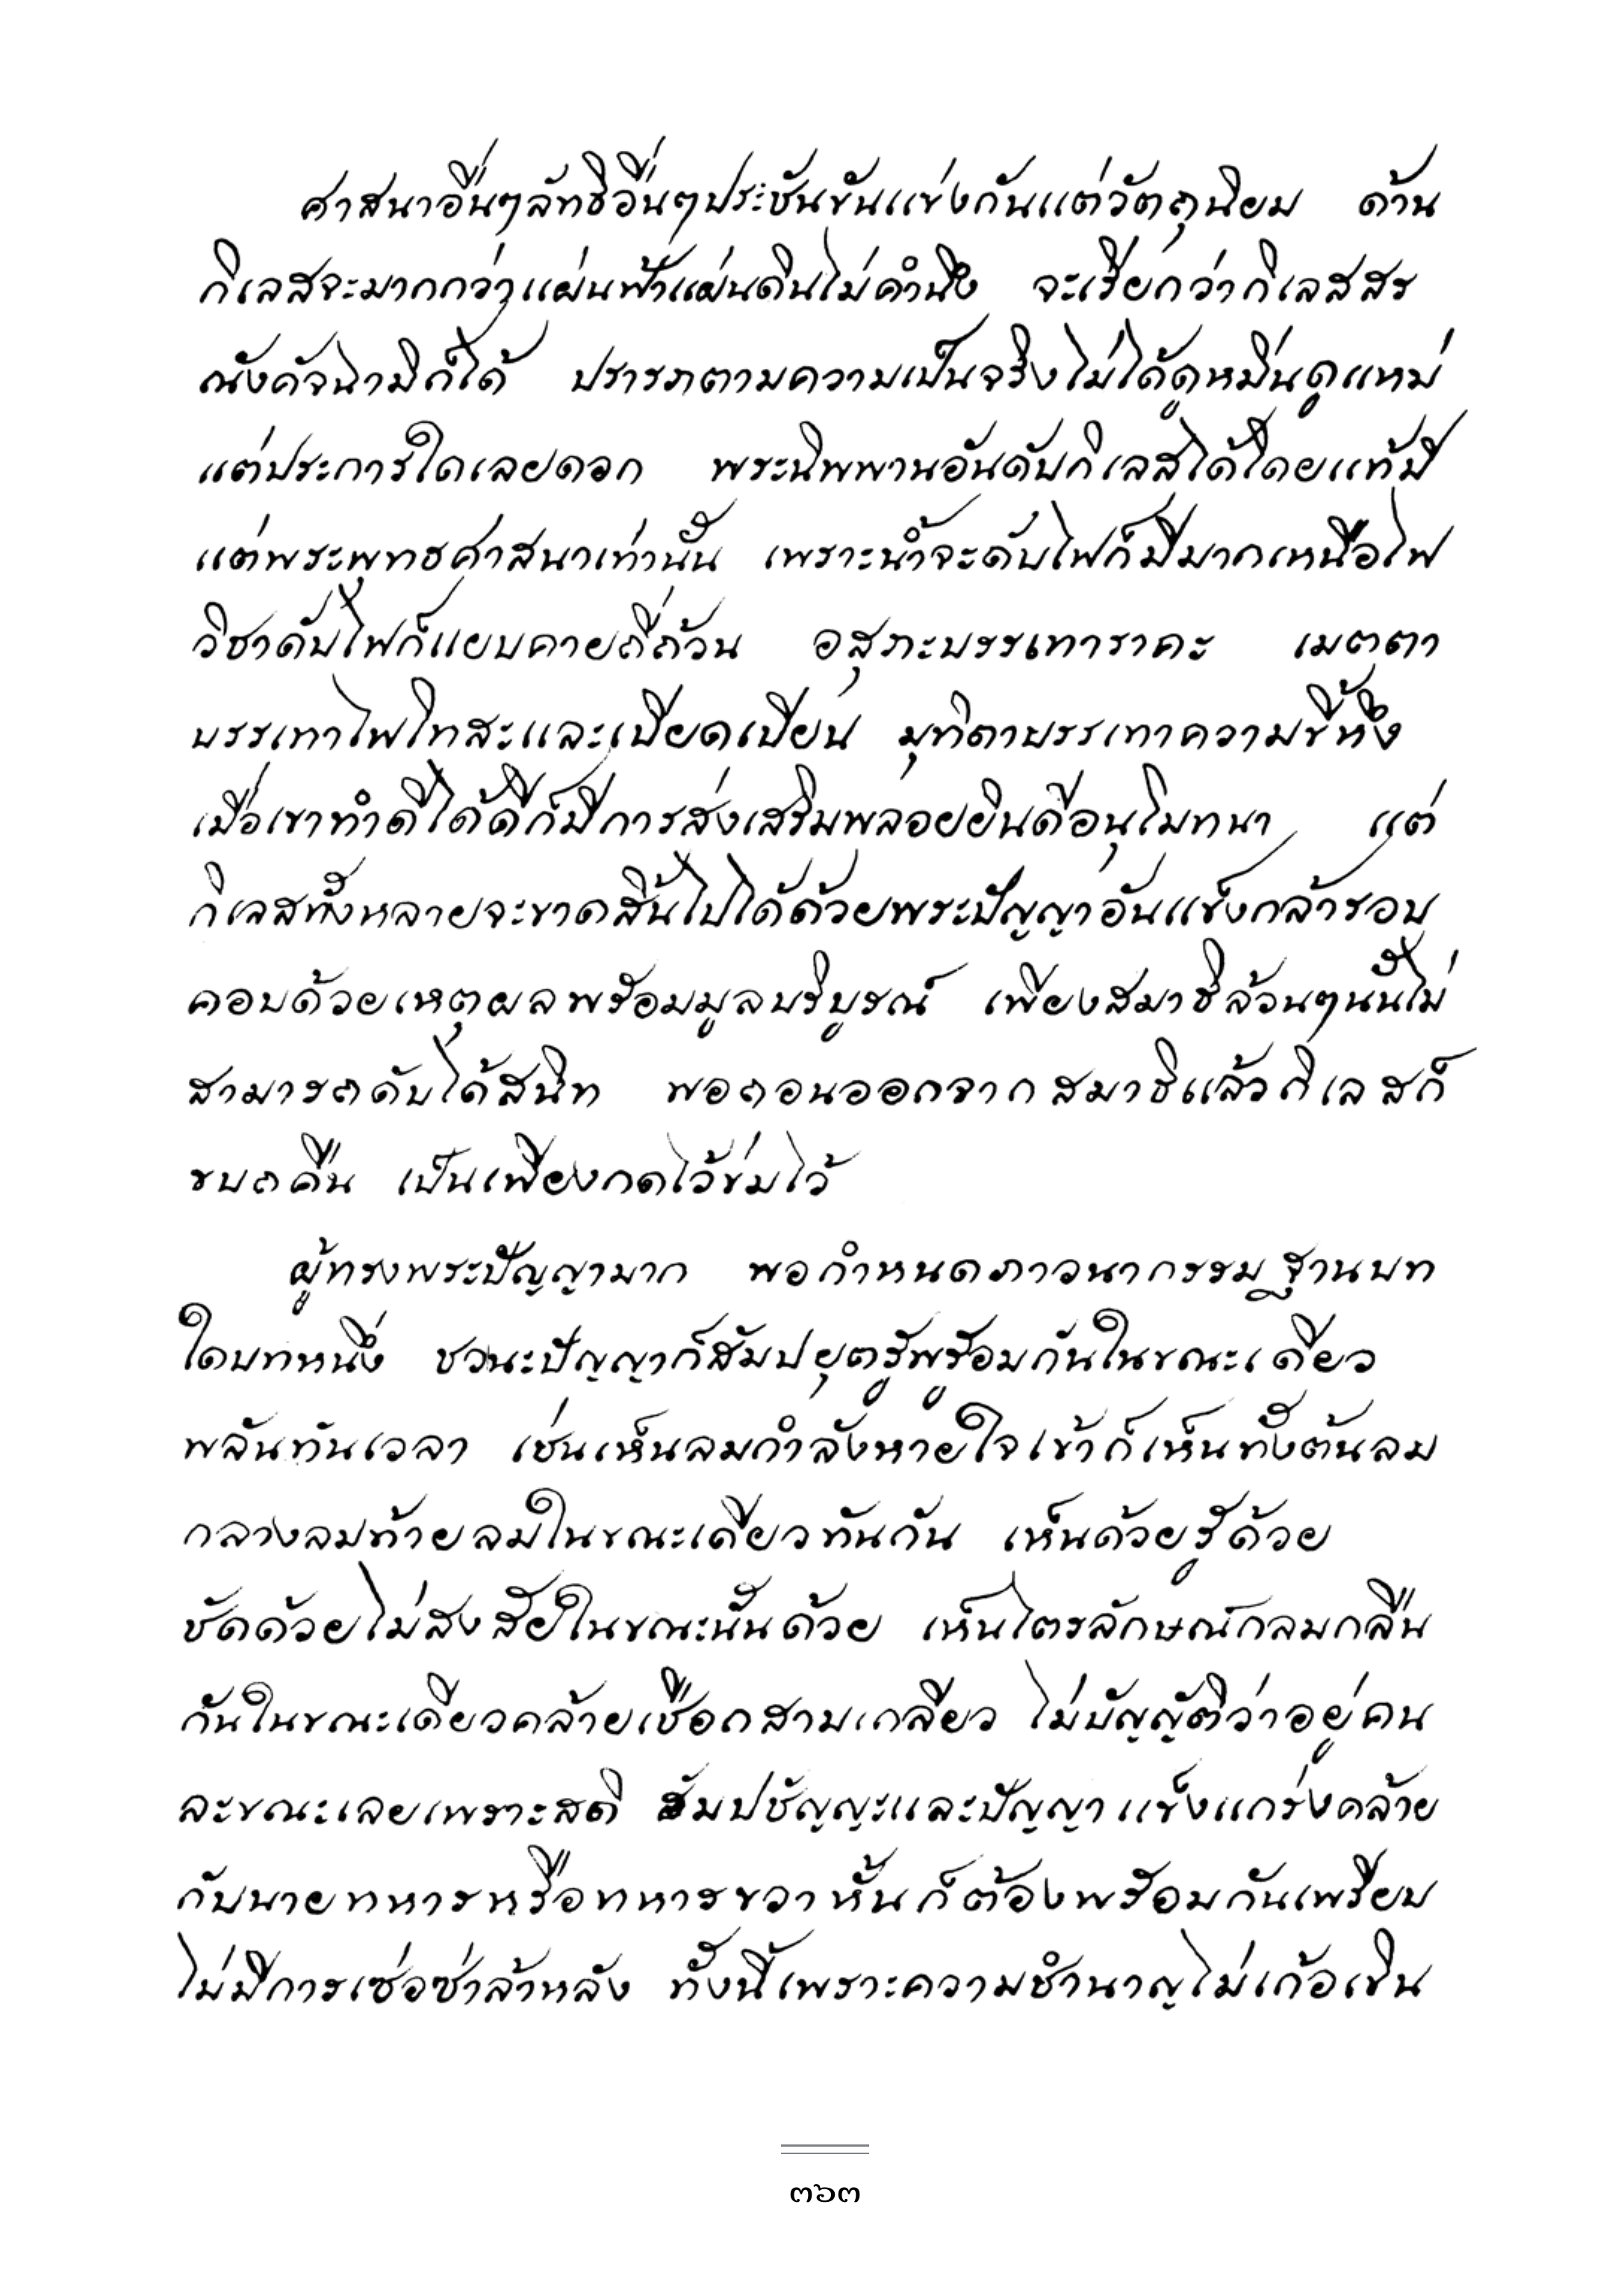 ศาสนาอื่นๆลัทธิอื่นๆประชันขันแข่งกันแต่วัตถุนิยม ด้าน
กิเลสจะมากกว่าแผ่นฟ้าแผ่นดินไม่คำนึง จะเรียกว่ากิเลสสร
ณังคัจฉามิก็ได้ ปรารภตามความเป็นจริงไม่ได้ดูหมิ่นดูแหม่
แต่ประการใดเลยดอก พระนิพพานอันดับกิเลสได้โดยแท้มี
แต่พระพุทธศาสนาเท่านั้น เพราะน้ำจะดับไฟก็มีมากเหนือไฟ
วิชาดับไฟก็แยบคายถี่ถ้วน อสุภะบรรเทาราคะ เมตตา
บรรเทาไฟโทสะและเบียดเบียน มุทิตาบรรเทาความขี้หึง
เมื่อเขาทำดีได้ดีก็มีการส่งเสริมพลอยยินดีอนุโมทนา แต่
กิเลสทั้งหลายจะขาดสิ้นไปได้ด้วยพระปัญญาอันแข็งกล้ารอบ
คอบด้วยเหตุผลพร้อมมูลบริบูรณ์ เพียงสมาธิล้วนๆนั้นไม่
สามารถดับได้สนิท พอถอนออกจากสมาธิแล้วกิเลสก็
ขบถคืน เป็นเพียงกดไว้ข่มไว้
ผู้ทรงพระปัญญามาก พอกำหนดภาวนากรรมฐานบท
ใดบทหนึ่ง ชวนะปัญญาก็สัมปยุตรู้พร้อมกันในขณะเดียว
พลันทันเวลา เช่นเห็นลมกำลังหายใจเข้าก็เห็นทั้งต้นลม
กลางลมท้ายลมในขณะเดียวทันกัน เห็นด้วยรู้ด้วย
ชัดด้วยไม่สงสัยในขณะนั้นด้วย เห็นไตรลักษณ์กลมกลืน
กันในขณะเดียวคล้ายเชือกสามเกลียว ไม่บัญญัติว่าอยู่คน
ละขณะเลยเพราะสติ สัมปชัญญะและปัญญาแข็งแกร่งคล้าย
กับนายทหารหรือทหารขวาหันก็ต้องพร้อมกันเพรียบ
ไม่มีการเซ่อซ่าล้าหลัง ทั้งนี้เพราะความชำนาญไม่เก้อเขิน
๓๖๓